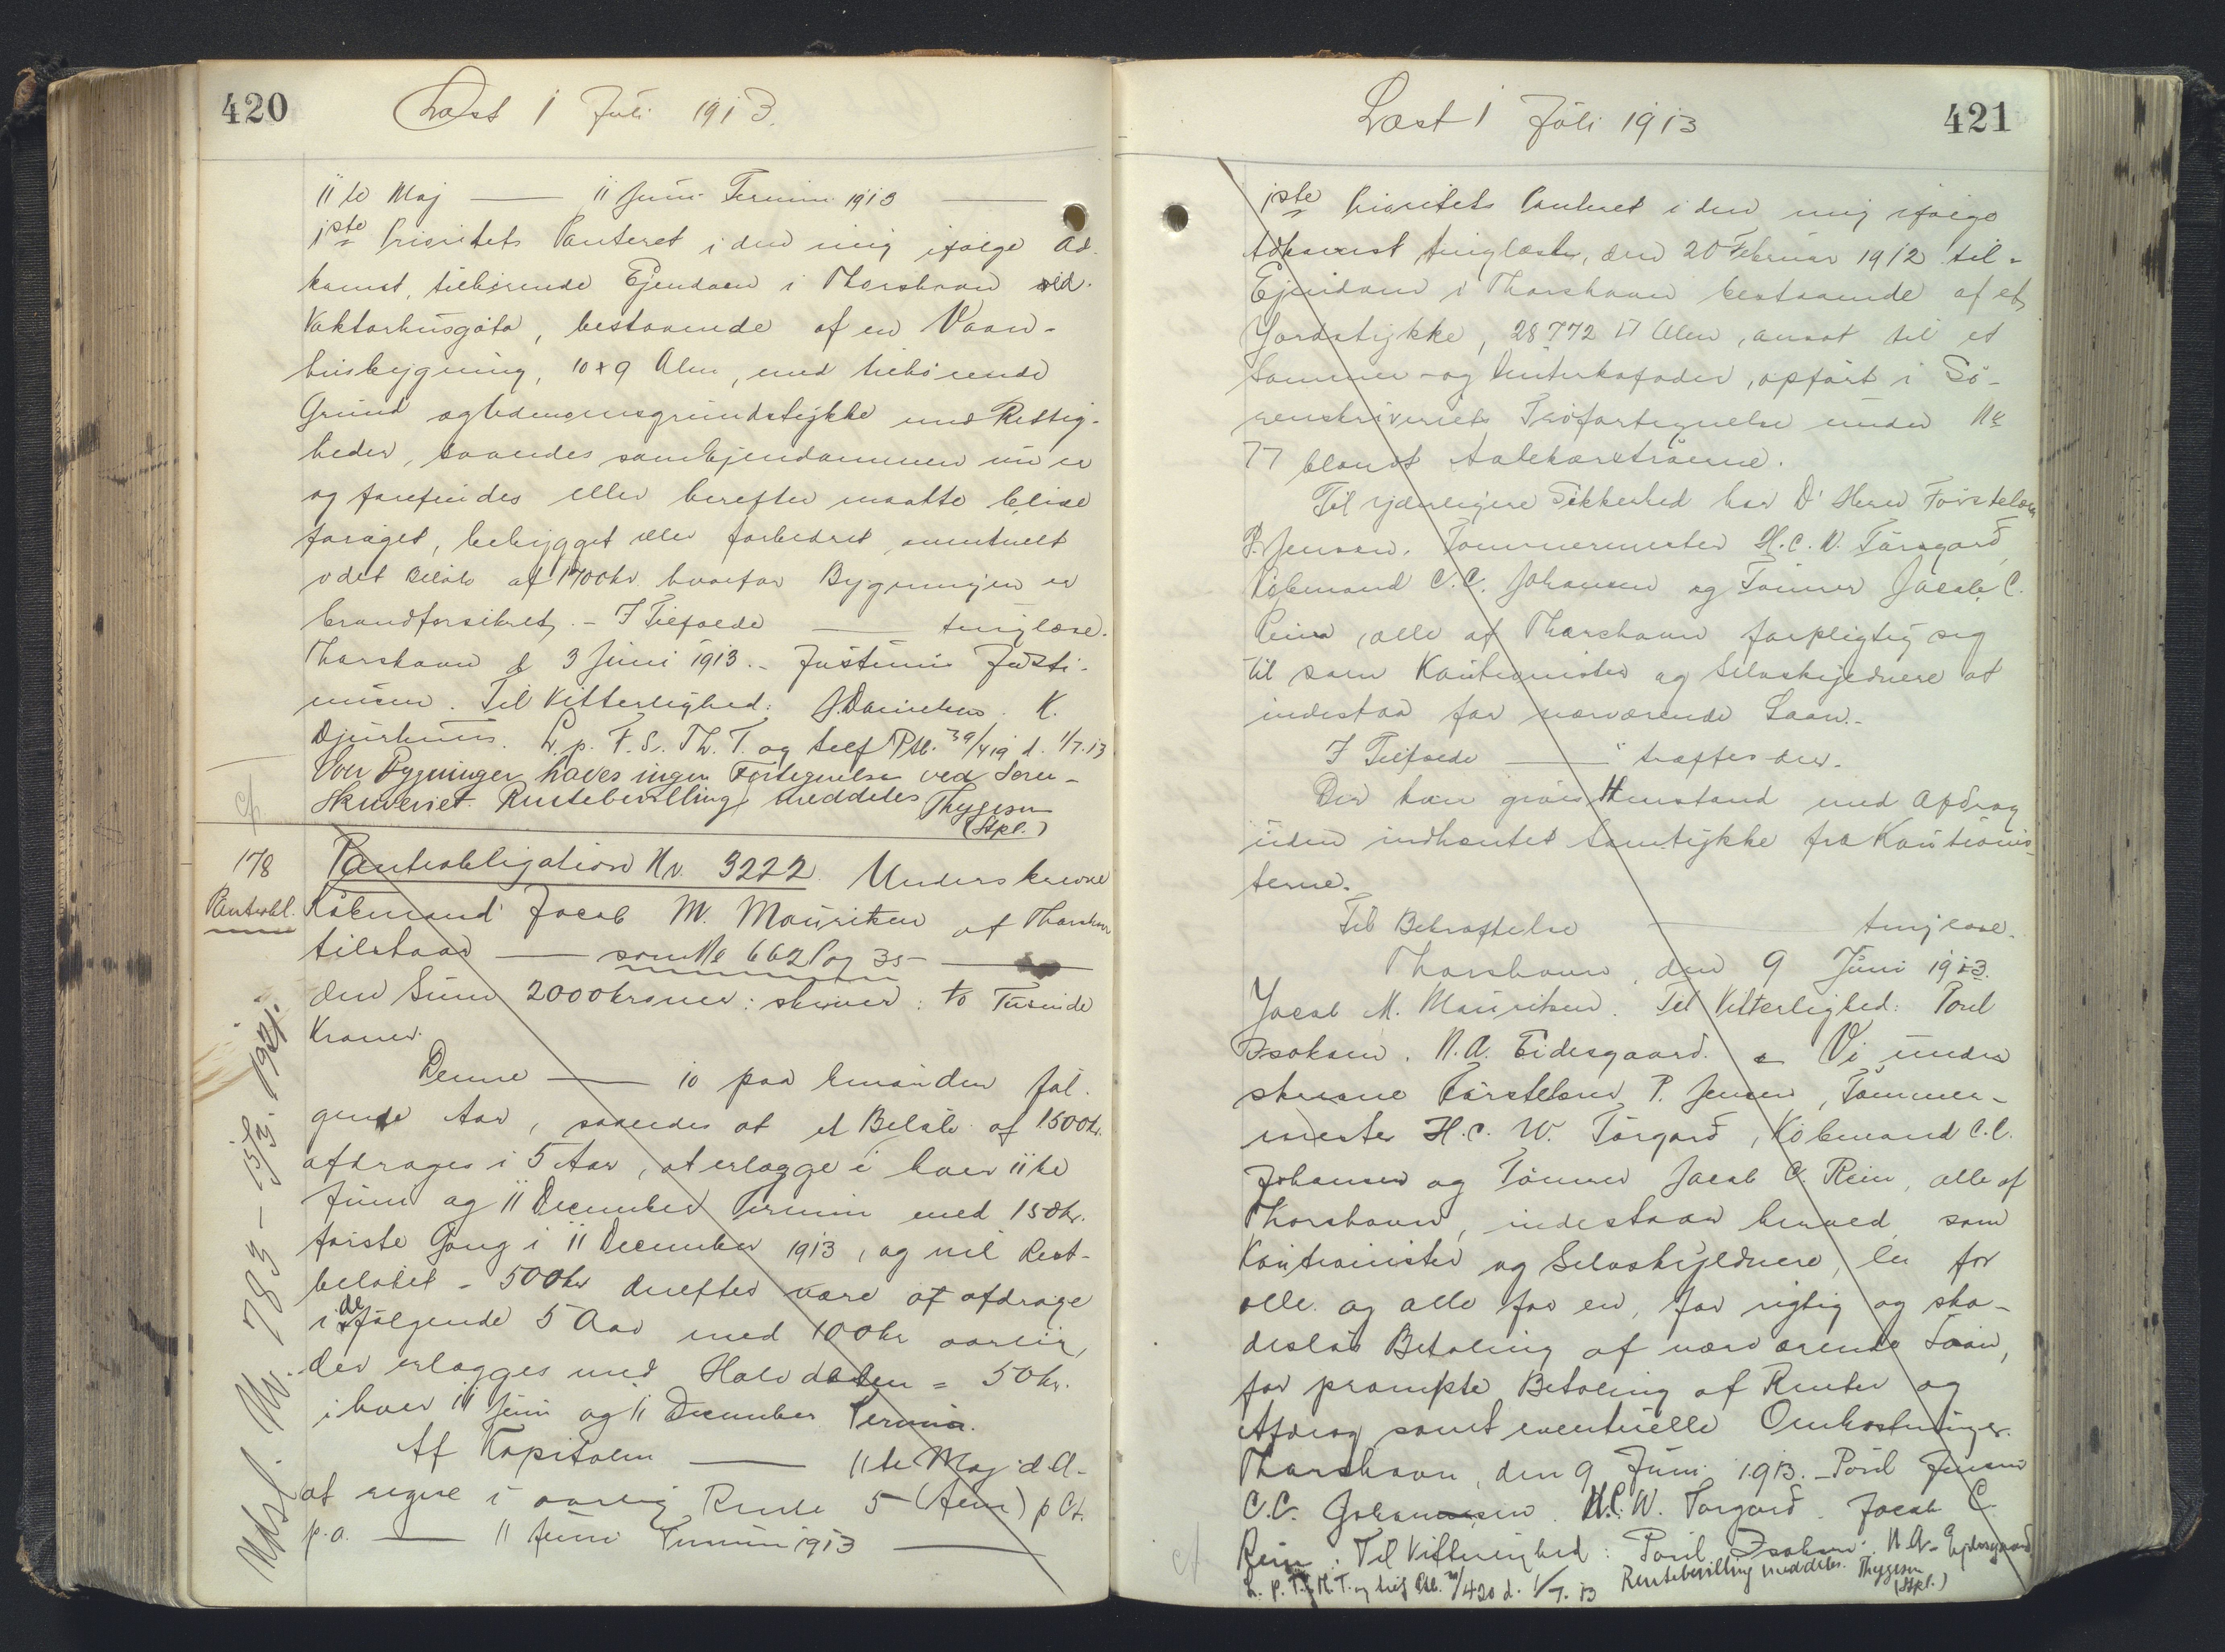 420
Læst 1 Juli 1913.
11te Maj — 11 Juni Termin 1913 —
1ste Prioritets Panteret i den mig ifølge Ad-
komst, tilhørende Ejendom i Thorshavn ved
Vaktarhusgøta, bestaaende af en Vaan-
husbygning, 10 x 9 Alen, med tilhørende
Grund og Udenomsgrundstykke med Rettig-
heder, saaledes som Ejendommen nu er
og forefindes eller herefter maatte blive
forøget, bebygget eller forbedret, eventuelt
i det Beløb af 1700 kr. hvorfor Bygningen er
brandforsikret. - I Tilfælde — tinglæse.
Thorshavn d 3 Juni 1913. - Justinus Justi-
nusen. Til Vitterlighed: J. Danielsen. K.
Djurhuus. L. p. F. S. Th. T. og tilf Ptb. 39/419 d. 1/7. 13
Over Bygninger haves ingen Fortegnelse ved Soren-
skriveriet. Rentebevilling meddeles Thygesen
(Stpl.)
cf
178
Pantobl.
Pantobligation Nr. 3222. Underskrevne
Købmand Jacob M. Mouritsen af Thorshavn
tilstaar — som Nr 662 Pag 35 —
den Sum 2000 kroner: skriver: to Tusinde
Kroner.
Denne — 10 paa hinanden føl-
gende Aar, saaledes at et Beløb af 1500 kr.
afdrages i 5 Aar, at erlægge i hver 11te
Juni og 11 December Termin med 150 kr.
første Gang i 11 December 1913, og vil Rest-
beløbet - 500 kr derefter være at afdrage
i de følgende 5 Aar med 100 kr aarlig,
der erlægges med Halvdelen = 50 kr.
i hver 11 Juni og 11 December Termin.
Af Kapitalen — 11te Maj d. A.
at regne i aarlig Rente 5 (fem) p Ct.
p. a. — 11 Juni Termin 1913 —
Udsl. Nr. 783 - 15/3. 1921.
Læst 1 Juli 1913
421
1ste Prioritets Panteret i den mig ifølge
Adkomst tinglæst, den 20 Februar 1912 til-
Ejendom i Thorshavn bestaaende af et
Jordstykke, 28772 □ Alen, ansat til et
Sommer- og Vinterkofoder, opført i So-
renskriveriets Trøfortegnelse under Nr
77 blandt Aalekærstrøerne.
Til yderligere Sikkerhed har D' Herrer Førstelærer
P. Jensen, Tømmermester H. C. W. Tórgarð,
Købmand C. C. Johansen og Tømrer Jacob C.
Rein, alle af Thorshavn forpligtig sig
til som Kautionister og Selvskyldnere at
indestaa for nærværende Laan.
I Tilfælde — " træffes der.
Der kan gives Henstand med Afdrag
uden indhentet Samtykke fra Kautionis-
terne.
Til Bekræftelse — tinglæse.
Thorshavn, den 9 Juni 1913.
Jacob M. Mouritsen. Til Vitterlighed: Poul
Isaksen. N. A. Eidesgaard. Vi under
skrevne Førstelærer P. Jensen, Tømmer-
mester H. C. W. Tórgarð, Købmand C. C.
Johansen og Tømrer Jacob C. Rein, alle af
Thorshavn, indestaar herved som
Kautionister og Selvskyldnere, En for
alle og alle for en, for rigtig og ska-
desløs Betaling af nærværende Laan,
for prompte Betaling af Renter og
Afdrag samt eventuelle Omkostninger.
Thorshavn, den 9 Juni 1913. - Poul Jensen
C. C. Johannesen. H. C. W. Torgarð. Jacob C.
Rein. Til Vitterlighed: Poul Isaksen. N. A. Ejdesgaard
L. p. F. S. Th. T. og tilf Ptb. 39/420 d. 1/7. 13 Rentebevilling meddeles. Thygesen
(Stpl.)
cf